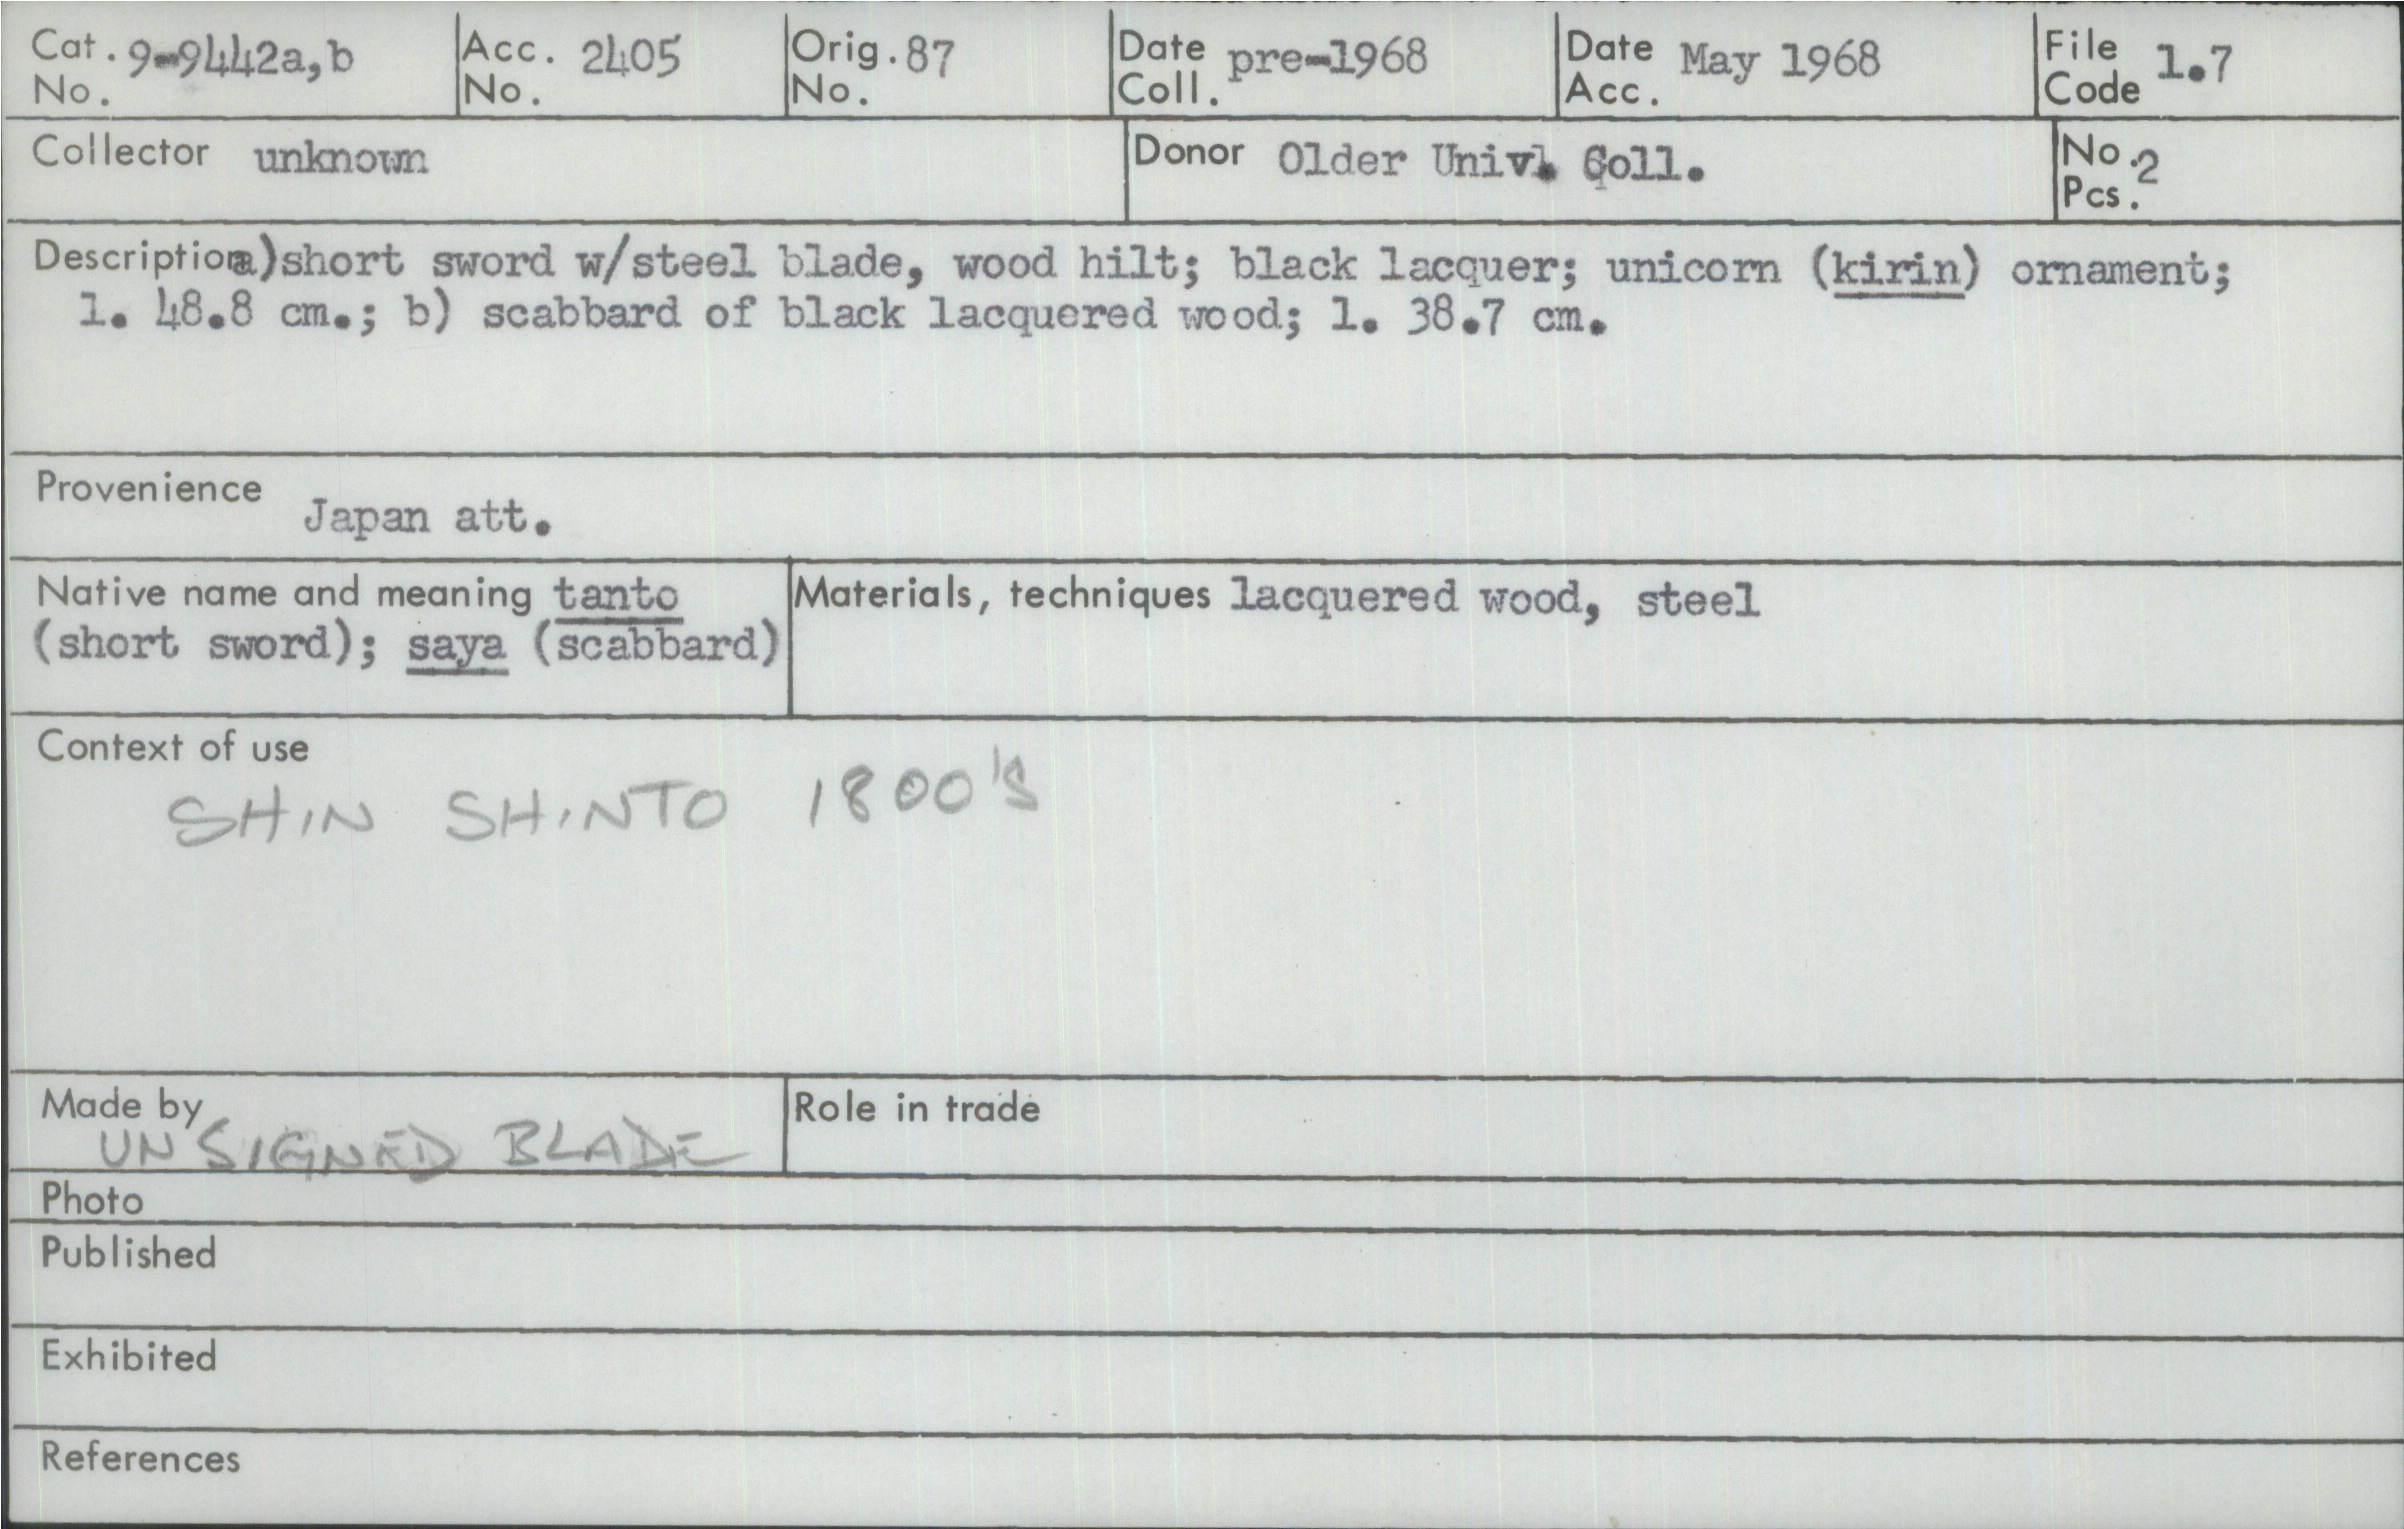 Cat. No. 9-9442a,b Acc. No. 2405 Orig. No. 87 Date Coll. pre-1968 Date Acc. May 1968 File Code 1.7
Collector unknown Donor Older Univ. Coll. No. Pcs. 2
Description a) short sword w/steel blade, wood hilt; black lacquer; unicorn (kirin) ornament;
l. 48.8 cm.; b) scabbard of black lacquered wood; l. 38.7 cm.
Provenience Japan att.
Native name and meaning tanto
(short sword); saya (scabbard)
Materials, techniques lacquered wood, steel
Context of use
SHIN SHINTO 1800'S
Made by
UNSIGNED BLADE
Role in trade
Photo
Published
Exhibited
References